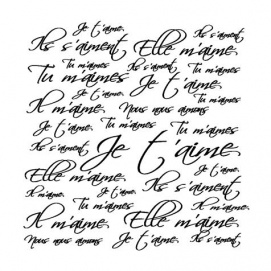 Je t'aime.
Ils s'aiment Elle m'aime.
Tu m'aimes Ils s'aiment
Tu m'aimes Je t'aime.
Je t'aime.
Il m'aime. Nous nous aimons
Je t'aime. Tu m'aimes Tu m'aimes
Ils s'aiment Je t'aime.
Elle m'aime. Ils s'aiment
Il m'aime. Je t'aime. Il m'aime.
Tu m'aimes Tu m'aimes
Il m'aime. Elle m'aime.
Nous nous aimons Je t'aime. Ils s'aiment